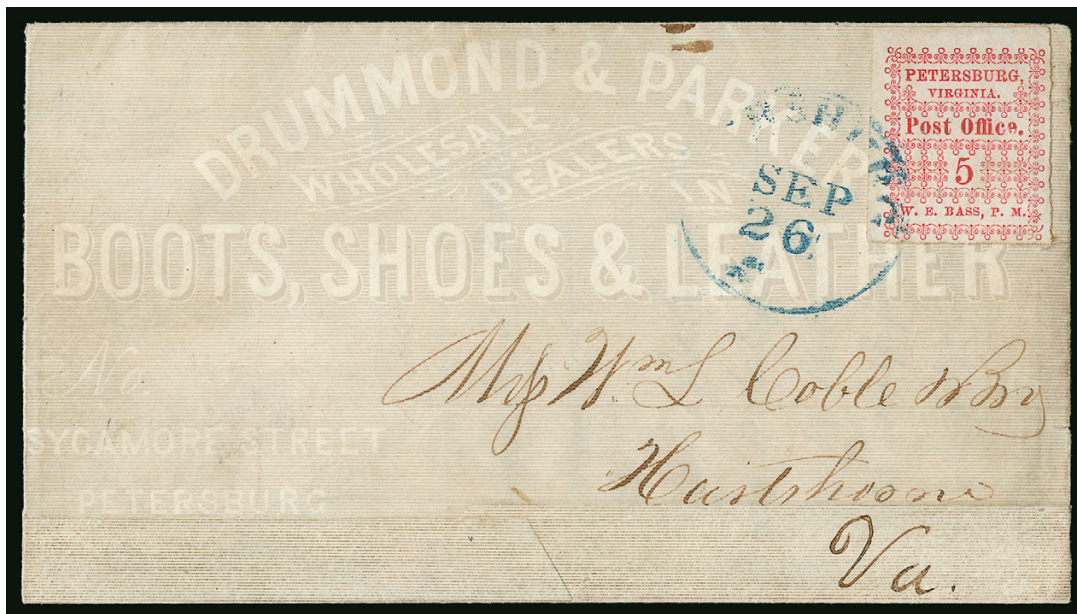 DRUMMOND & PARKER
WHOLESALE
DEALERS
IN
BOOTS, SHOES & LEATHER
No
SYCAMORE STREET
PETERSBURG
PETERSBURG,
VIRGINIA.
Post Office.
5
W. E. BASS, P. M.
SEP
26
Wm L Coble & Bro
Va.